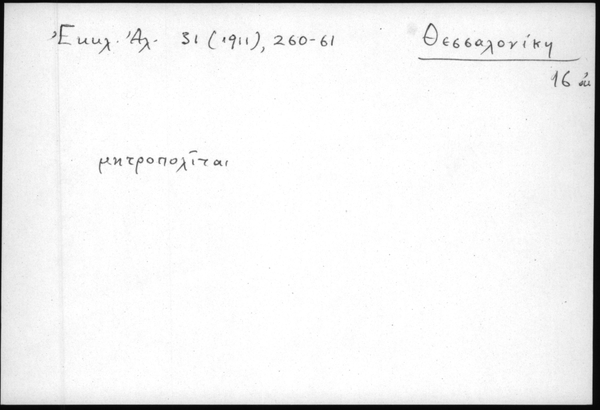 Ἐκκλ. Ἀλ. 31 (1911), 260-61
Θεσσαλονίκη
16 αἰ.
μητροπολῖται